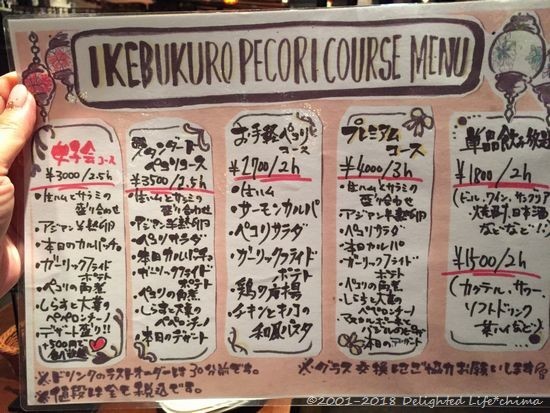 IKEBUKURO PECORI COURSE MENU
女子会コース
¥3000/2.5h
・生ハムとサラミの
盛り合わせ
・アジアン半熟卵
・本日のカルパッチョ
・ガーリックフライド
ポテト
・ペコリの角煮
・しらすと大葉の
ペペロンチーノ
デザート盛り!!
+500円で
スタンダード
ペコリコース
¥3500/2.5h
・生ハムとサラミの
盛り合わせ
・アジアン半熟卵
・ペコリサラダ
・本日カルパッチョ
・ガーリックフライド
ポテト
・ペコリの角煮
・しらすと大葉の
ペペロンチーノ
・本日のデザート
お手軽ペコリ
コース
¥2700/2h
・生ハム
・サーモンカルパ
・ペコリサラダ
・ガーリックフライド
ポテト
・鶏の唐揚
・チキンときのこ
和風パスタ
プレミアム
コース
¥4000/3h
・生ハムとサラミの
盛り合わせ
・アジアン半熟卵
・ペコリサラダ
・本日カルパ
・ガーリックフライド
ポテト
・ペコリの角煮
・しらすと大葉の
ペペロンチーノ
・本日のデザート
単品飲み放題
¥1800/2h
(ビール、ワイン、サングリア
焼酎、日本酒
などなど!!)
¥1500/2h
(カクテル、サワー、
ソフトドリンク
※ドリンクのラストオーダーは30分前です。
※グラス交換にご協力お願いします
※値段は全て税込です。
©2001-2018 Delighted Life*chima